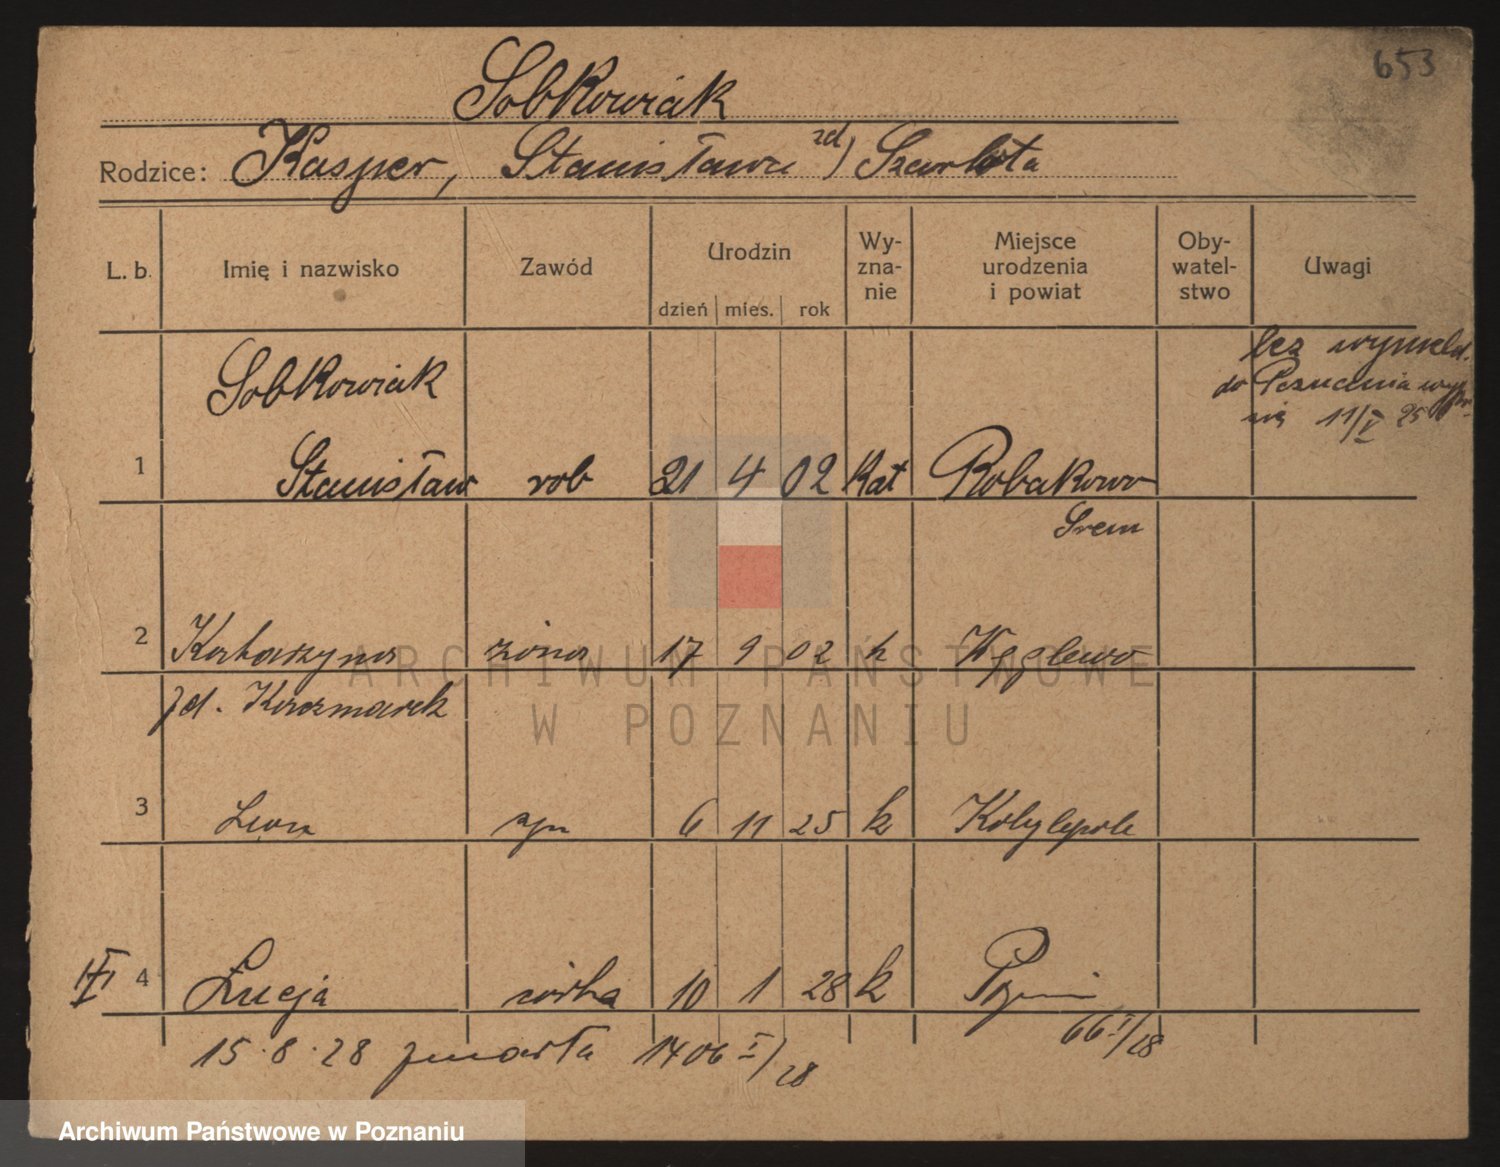 653
Sobkowiak
Rodzice: Kasper, Stanisława zd) Szarłata
L. b. Imię i nazwisko Zawód Urodzin Wyznanie Miejsce urodzenia i powiat Obywatelstwo Uwagi
dzień mies. rok
Sobkowiak bez wymeld.
do Poznania
11/V 25
1 Stanisław rob 21 4 02 kat Robakowo
Srem
2 Katarzyna żona 17 9 02 k
zd. Kaczmarek
3 Leon syn 6 11 25 k Kobylepole
4 Łucja córka 10 1 28 k
66 I/28
15.8.28 zmarła 1406 I/28
ARCHIWUM PAŃSTWOWE
W POZNANIU
Archiwum Państwowe w Poznaniu